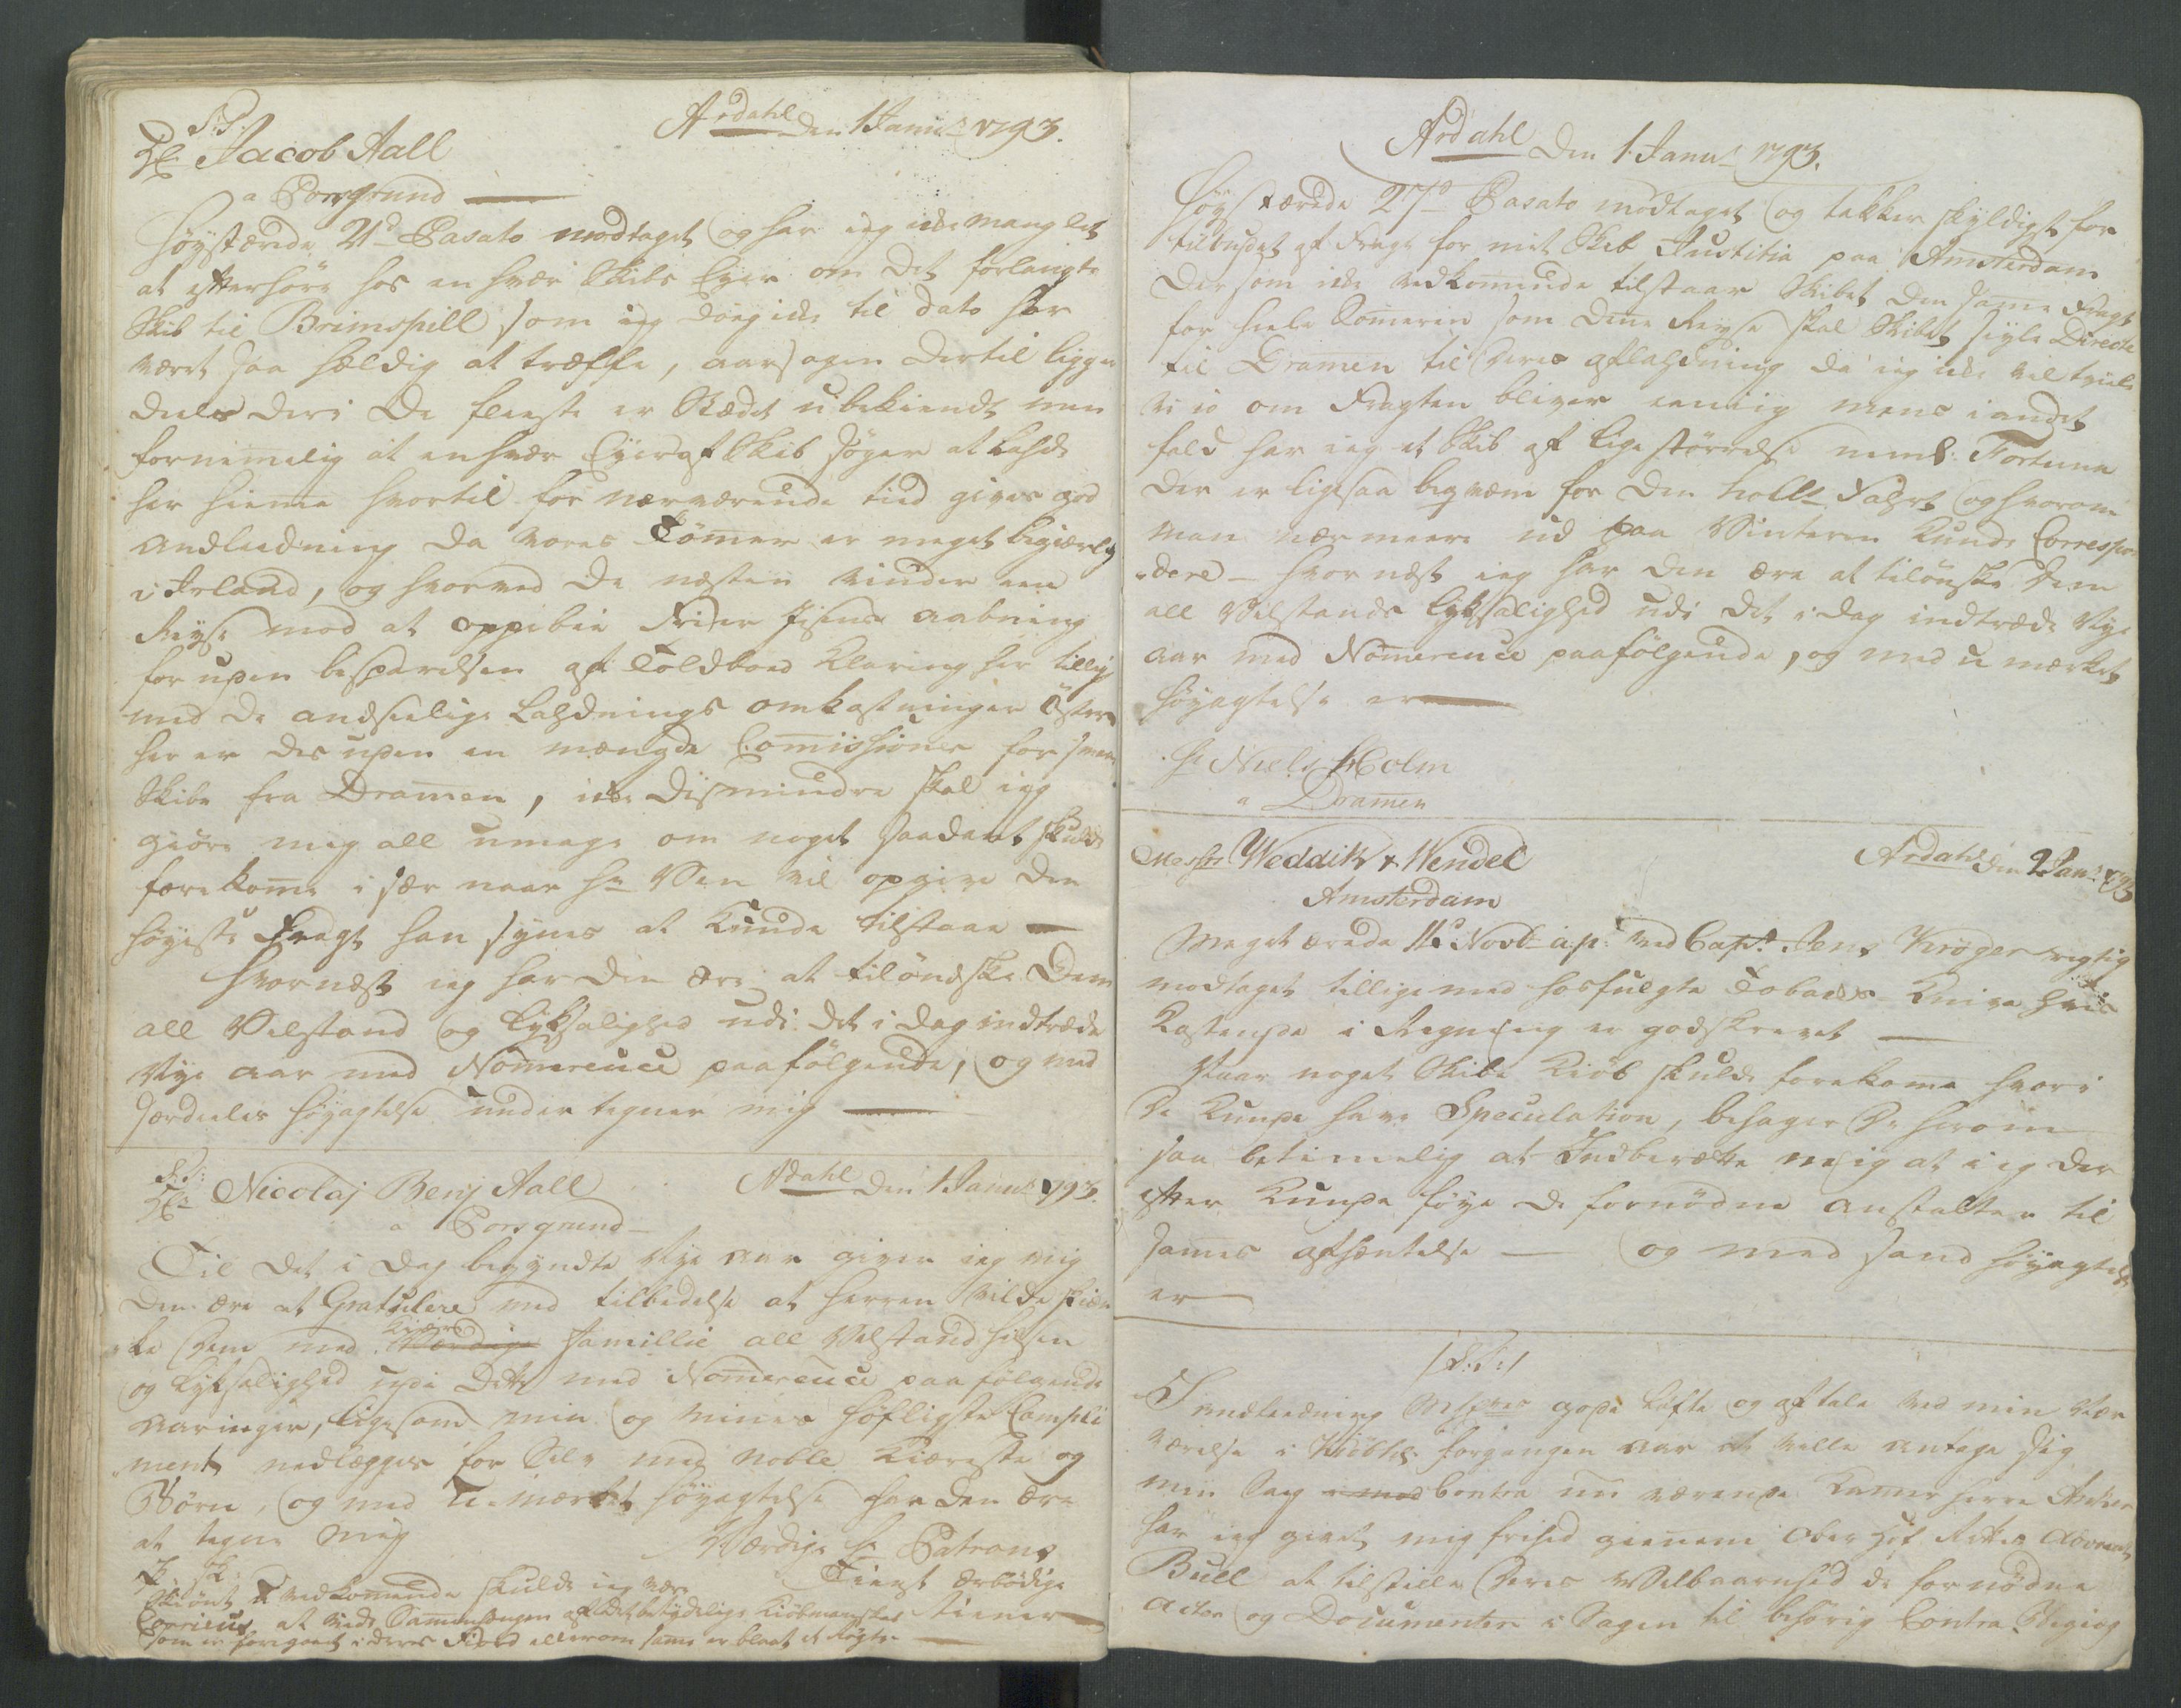 S.T.
Hr Jacob Aall
a Porsgrund
Ardahl den 1 Janu: 1793.
Høystærede 21d Pasato modtaget og har ieg icke manglet
at efterhöre hos en hver Skibs Eyer om det forlangte
Skib til Brimspill som ieg dog icke til dato har
været saa heldig at træffe, aarsagen dertil ligger
deels deri De fleeste er Stædet ubekiendt men
fornemmelig at en hver Eyer af Skib søger at Lahde
her hieme hvortil for nærværende tiid gives god
andleedning da vores Tömer er meget begiærlig
i Irland, og hvorved de næsten vinder een
Reyse mod at oppebie Isens aabning
foruden besparelsen af Toldboed Klaring her tillige
med de andseelige Lahdnings omkostninger Øster
her er desuden en mængde Commissioner for smaa
Skibe fra Dramen, icke dismindre skal ieg
giöre mig all umage om noget saadant skulde
forekomme i sær naar Hr Ven vil opgive den
höyeste Fragt han synes at kunde tilstaae
Hvornæst ieg har den ære at tilöndske Dem
all Velstand og Lyksalighed udi det i dag indtrædede
Nye aar med Nommereuce paafölgende, og med
særdeeles höyagtelse under tegner mig
S.T.
Hr Nicolaj Benj Aall
a Porsgrund
Ardahl den 1 Janu: 1793.
Til det i Dag begyndte Nye aar giver ieg mig
den ære at Gratulere med tilbedelse at Herren vilde skien
ke Dem med kiære Værdige Famillie all Velstand hilsen
og Lyksalighed udi Dette med Nommereuce paafölgende
aaringer, ligesom min og mines höfligste Compli
ment nedlægges for Dem med noble Kiæreste og
Börn, og med u-mærket höyagtelse har den ære
at tegne mig
Værdige Hr Patrons
Tienst ærbödige
tiener
P. S.
Skiönt u vedkommende skulde ieg være
Corrieus at vide Sammenhengen af det betydelige Kiöbmandskab
som er foregaaet i deres Fiord ellerom samme er bloot et Rögte
Ardahl den 1 Janu: 1793.
Høystærede 27d Pasato modtaget og takker skyldigst for
tilbudet af Fragt for mit Skib Justitia paa Amsterdam
dersom icke vedkommende tilstaar Skibet den samme Fragt
for heele Sommeren som denne Reyse skal Skibet seyle Directe
til Dramen til deres aflahdning da ieg icke vil tvivle
vi io om Fragten bliver eenig mens i andet
fald har ieg et Skib af lige störrelse neml: Fortuna
der er ligesaa beqvæm for den holl: Fahrt og hvorom
man nærmeere ud paa Vinteren kunde Correspon
dere – hvor næst ieg har den ære at tilönske Dem
all Velstands Lyksalighed udi det i dag indtrædede Nye
aar med Nommereuce paafölgende, og med u mærket
höyagtelse er
Hr Niels Holm
a Dramen
Messrs Weddik & Wendel
Amsterdam
Ardahl den 2 Jan: 1793
Meget ærede 11te Novb: a.p: ved Capt. Jens Kröger rigtig
modtaget tillige med hosfulgte Tobacks Knive hvis
Kostende i Regning er godskrevet
Naar noget Skibs Kiöb skulde forekomme hvori
De kunde have Speculation, behager De herom
saa betimmelig at Indberætte mig at ieg der
efter kunde föye de fornödne anstalter til
sammes afhentelse — og med sand höyagtelse
er
/:S:T:/
I andleedning gode Löfte og aftale ved min Nær
værelse i Kiöbh: forgangen aar at ville antage sig
min Sag i mod Contra nu værende Kammerherre Anker
har ieg givet mig frihed gienem Ober Hof Retts Advocat
Bull at tilstille Deres Velbaarenhed de fornödne
Acter og Documenter i Sagen til behörig Contra